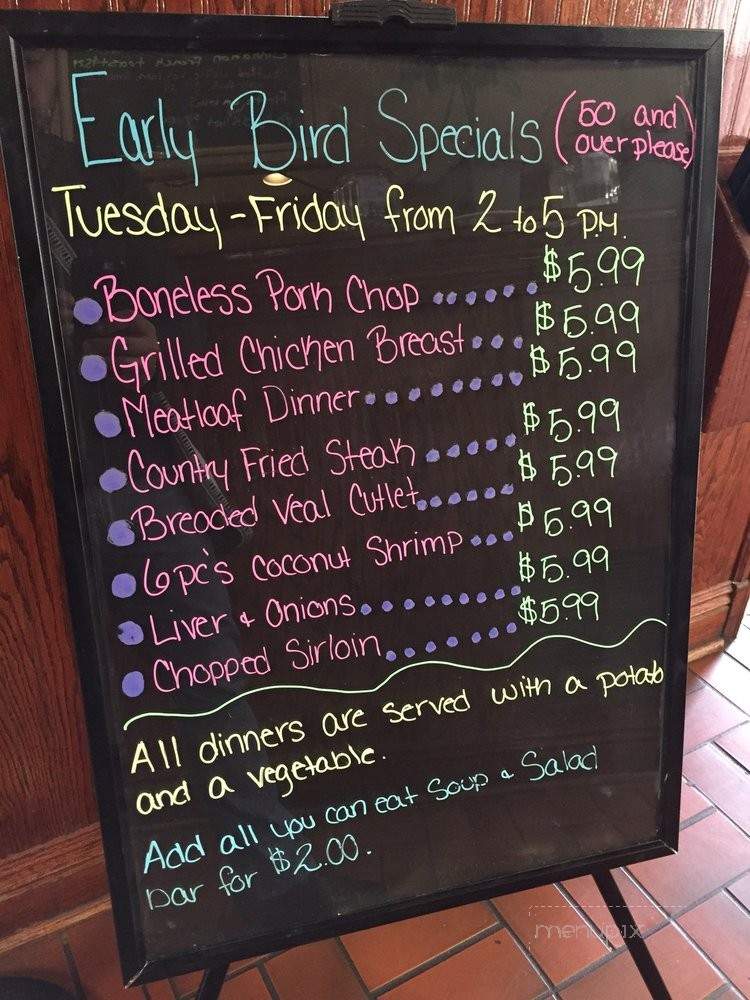 Early Bird Specials (50 and
over please)
Tuesday-Friday from 2 to 5 P.M.
Boneless Pork Chop ...... $5.99
Grilled Chicken Breast... $5.99
Meatloaf Dinner........ $5.99
Country Fried Steak ..... $5.99
Breaded Veal Cutlet...... $5.99
6pc's Coconut Shrimp... $5.99
Liver & Onions......... $5.99
Chopped Sirloin....... $5.99
All dinners are served with a potato
and a vegetable.
Add all you can eat Soup & Salad
bar for $2.00.
menupix